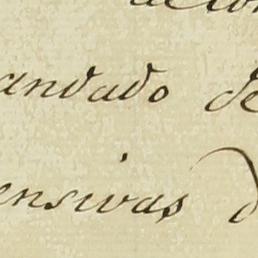 andado de
ensivas d